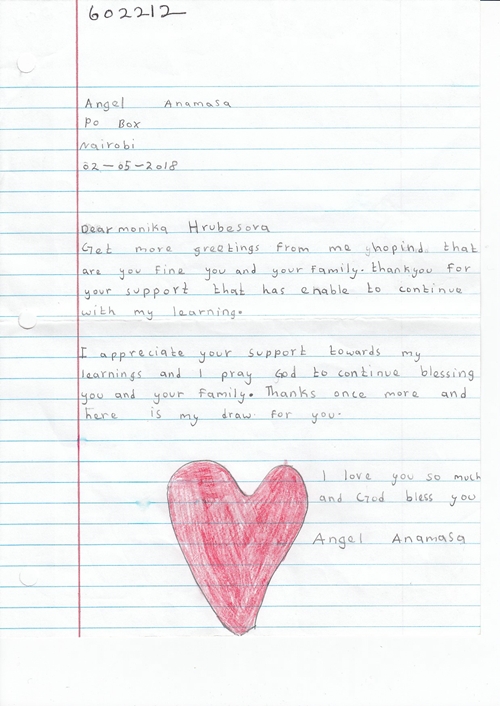 602212
Angel Anamasa
Po Box
Nairobi
02-05-2018
Dear monika Hrubesova
Get more greetings from me yhopind that
are you fine you and your family. thankyou for
your support that has enable to continue
with my learning.
I appreciate your support towards my
learnings and I pray God to continue blessing
you and your family. Thanks once more and
here is my draw for you.
I love you so much
and God bless you
Angel Anamasa